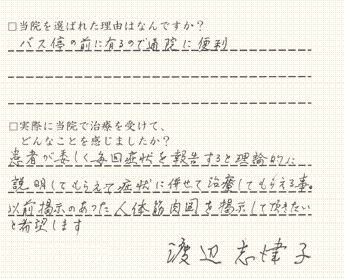 □当院を選ばれた理由はなんですか?
バス停の前に有るので通院に便利
□実際に当院で治療を受けて、
どんなことを感じましたか?
患者が委しく毎回症状を報告すると理論的に
説明してもらえて症状に併せて治療してもらえる事。
以前掲示のあった人体筋肉図を掲示して頂きたい
と希望します
渡辺志津子